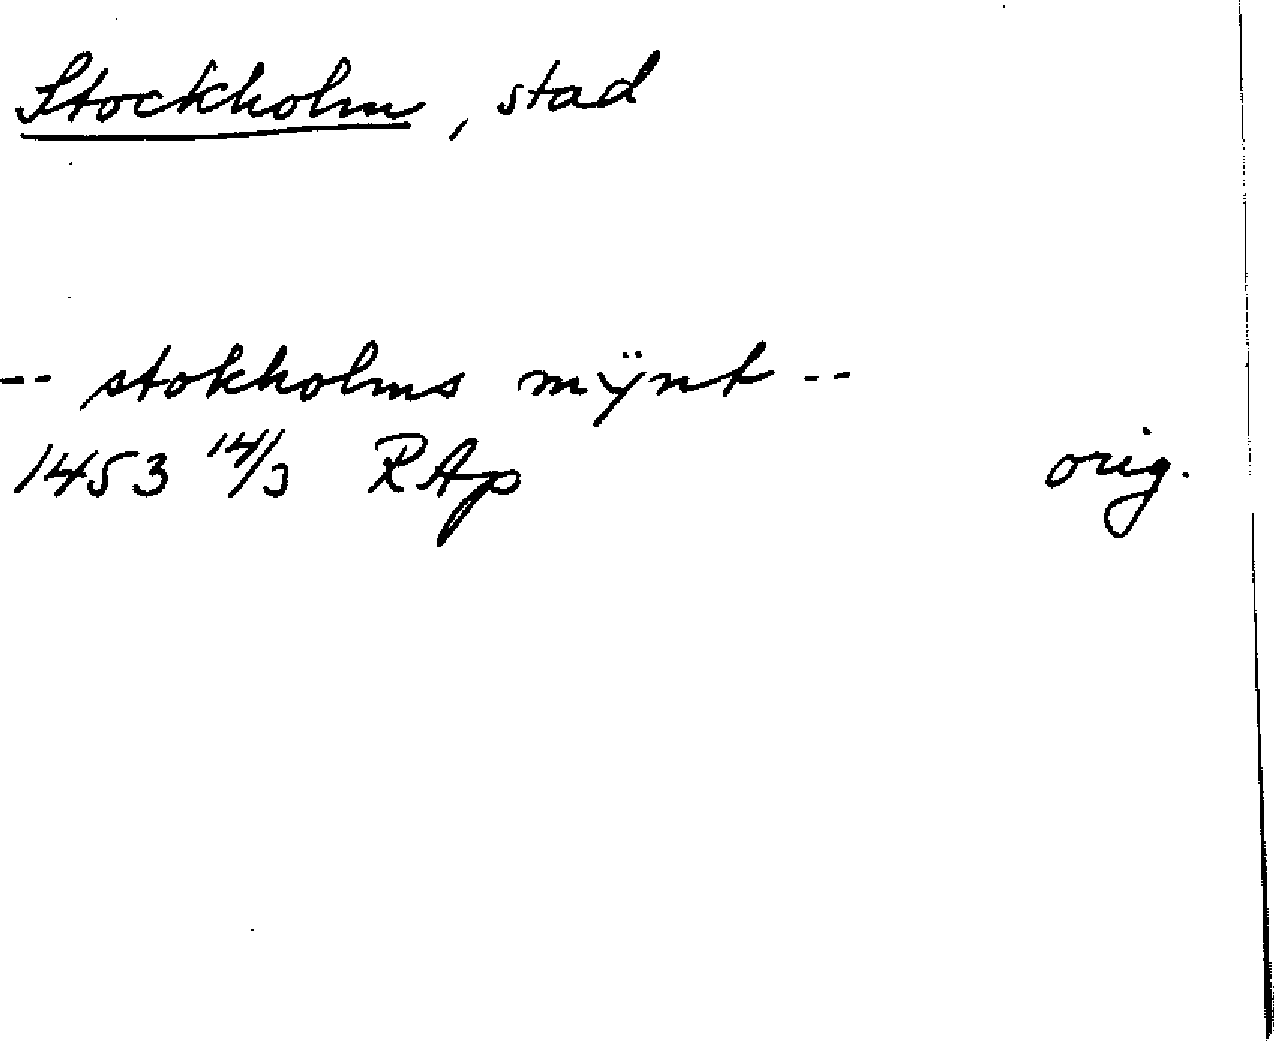 Stockholm, stad
-- stokholms mÿnt --
1453 14/3 RAp orig.